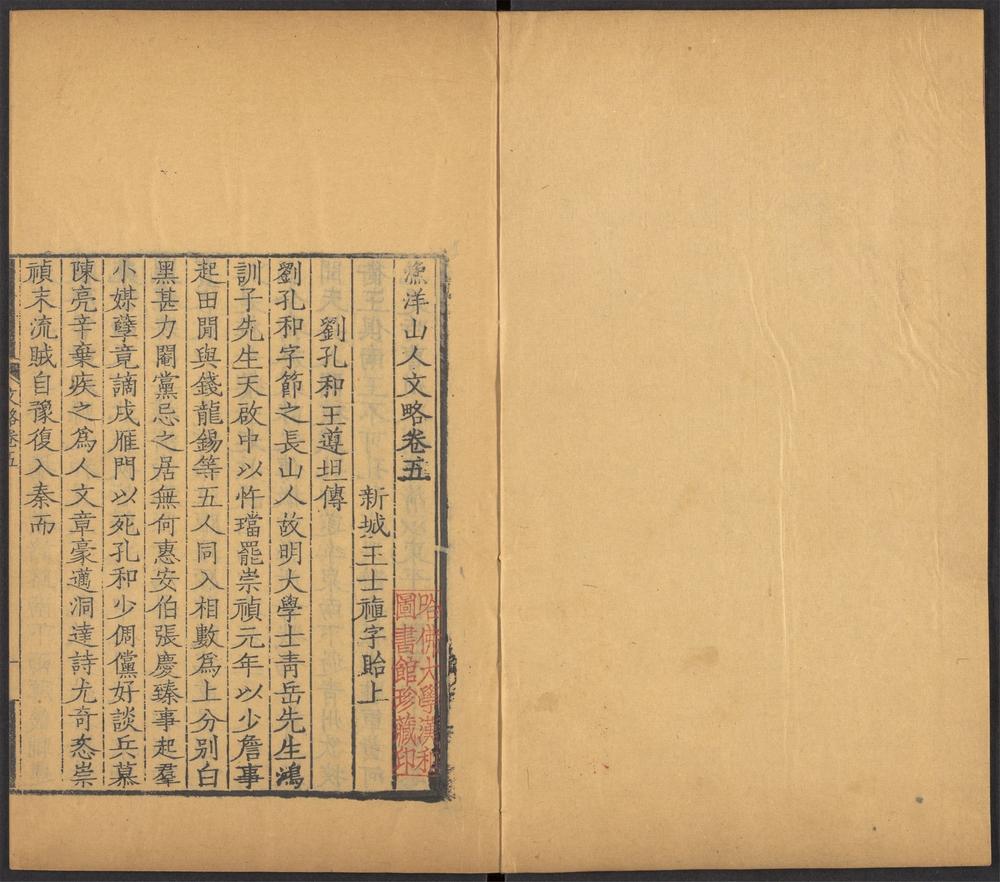 漁洋山人文略卷五
新城王士禛字貽上
劉孔和王遵坦傳
劉孔和字節之長山人故明大學士青岳先生鴻
訓子先生天啟中以忤璫罷崇禎元年以少詹事
起田閒與錢龍錫等五人同入相數爲上分別白
黑甚力閹黨忌之居無何惠安伯張慶臻事起羣
小媒孽竟謫戍雁門以死孔和少倜儻好談兵慕
陳亮辛棄疾之爲人文章豪邁洞達詩尤奇恣崇
禎末流賊自豫復入秦而
文略卷五
一
哈佛大學漢和
圖書館珍藏印